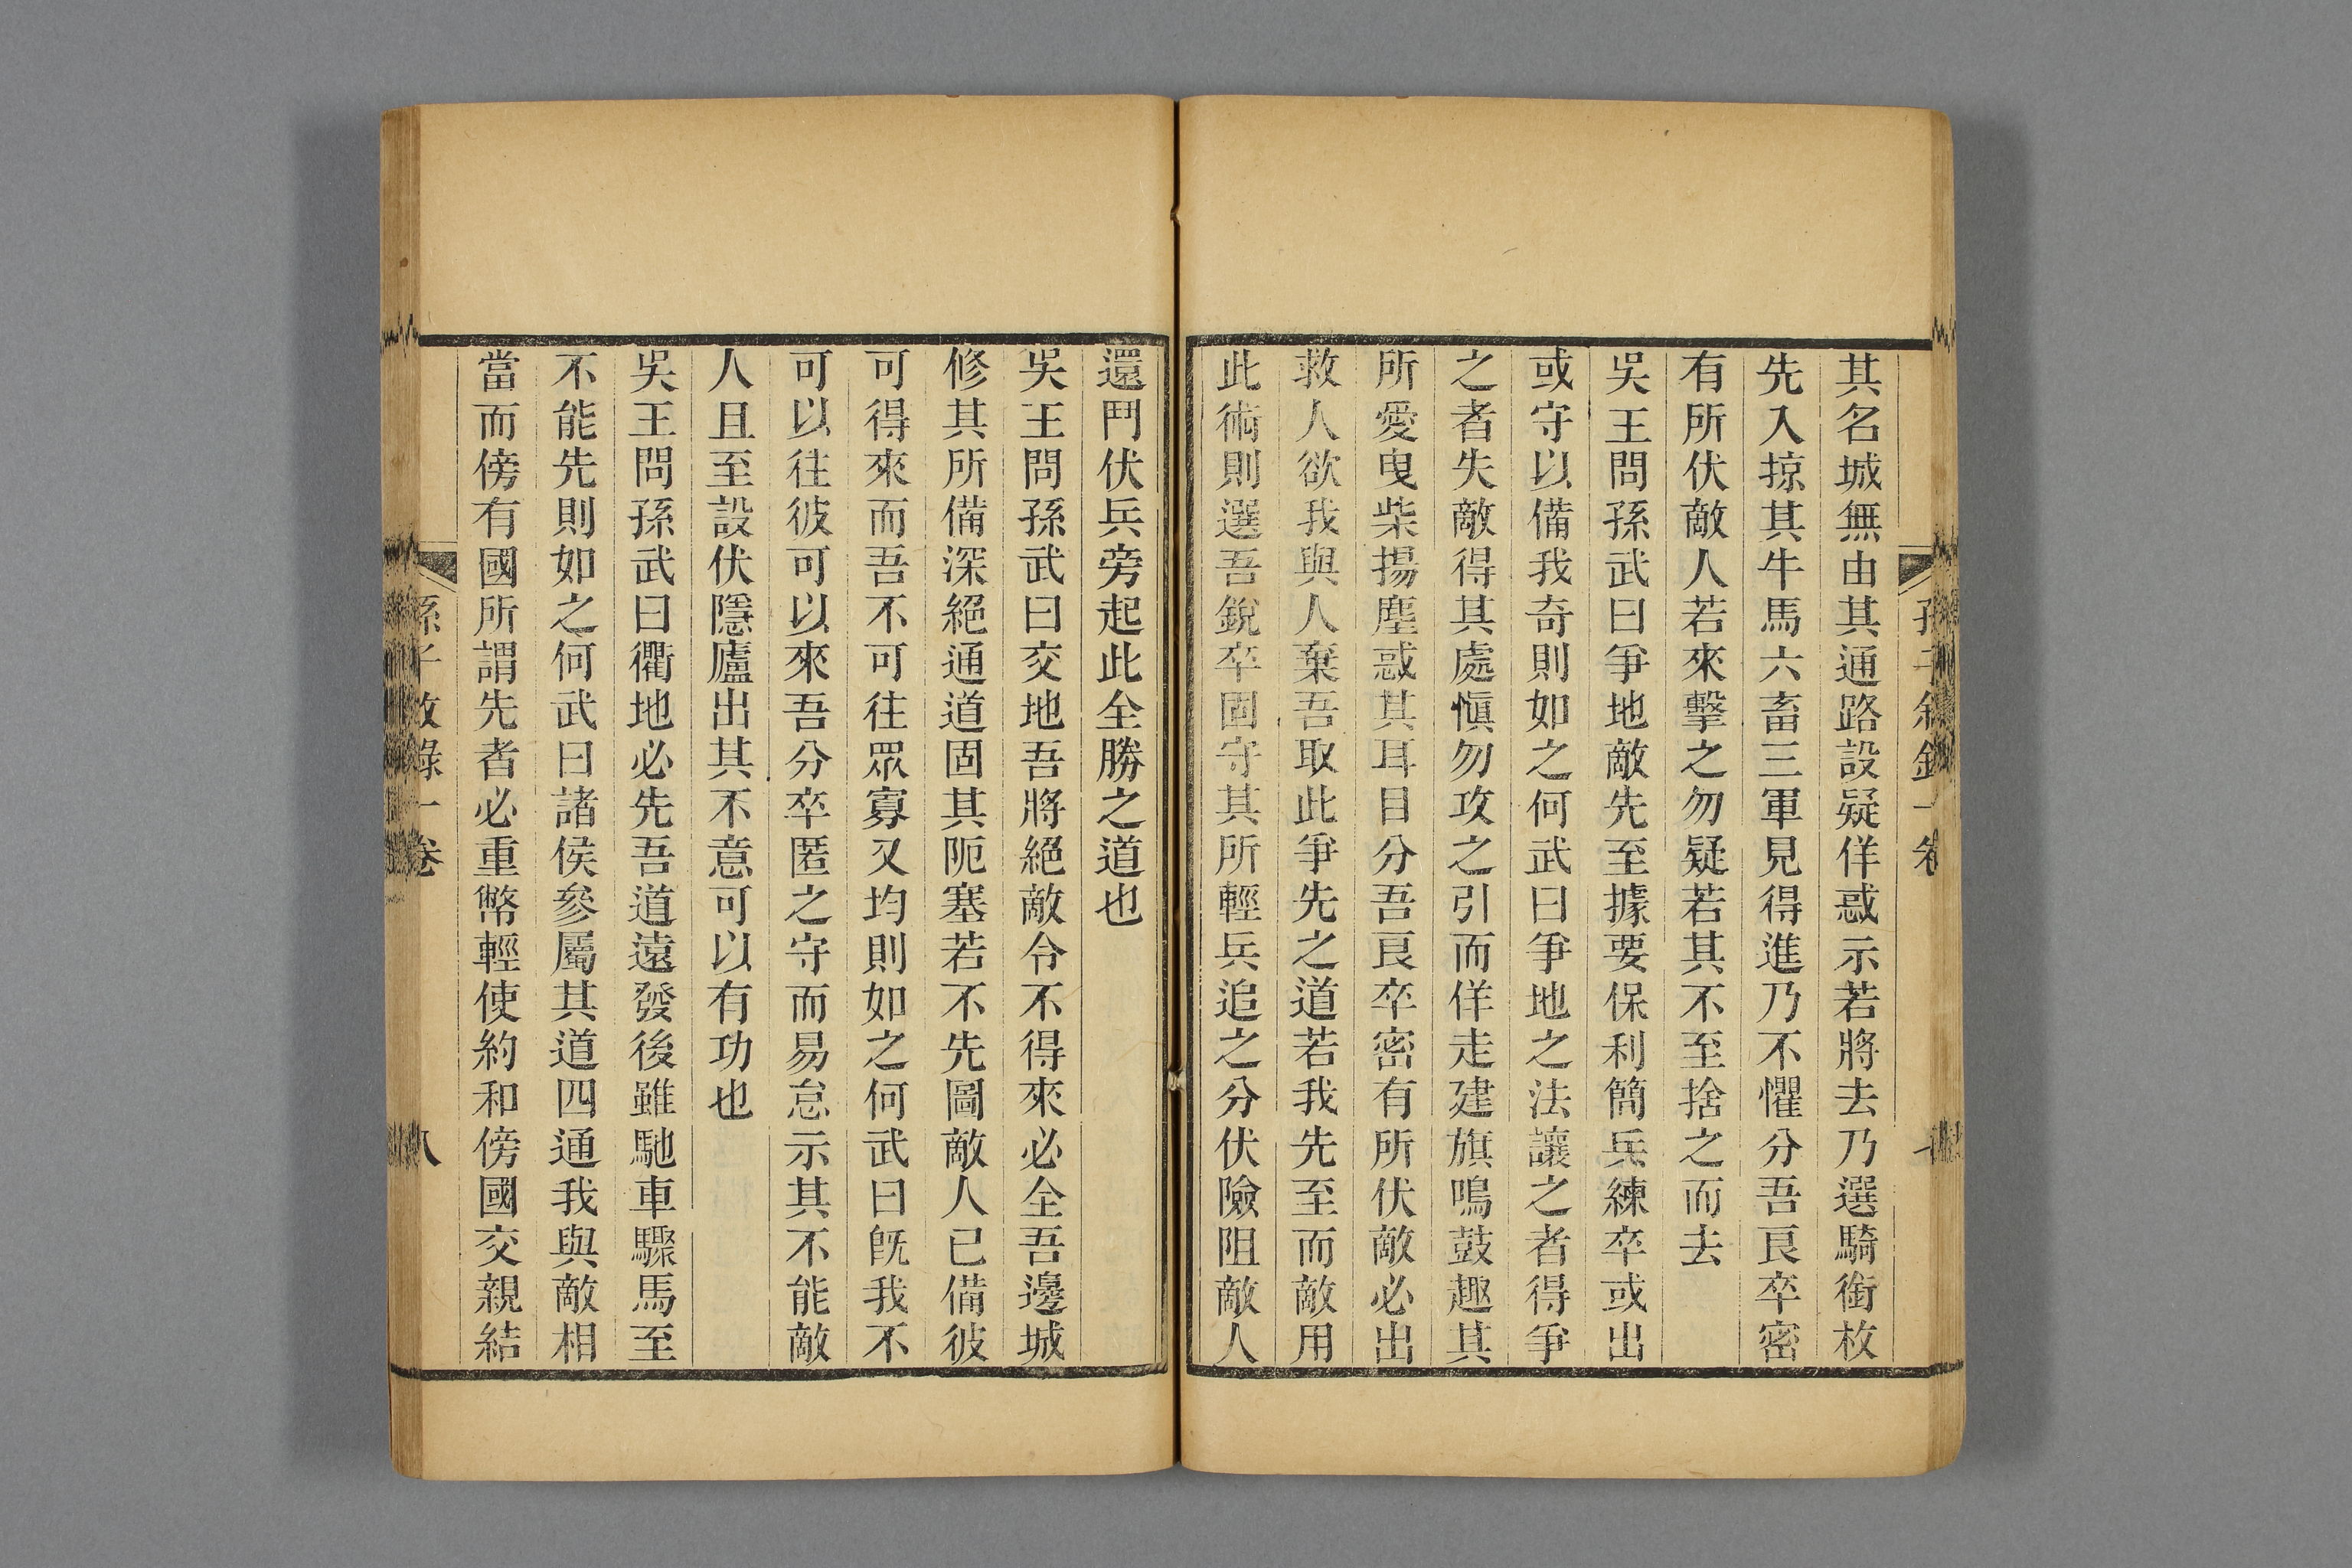 其名城無由其通路設疑佯惑示若將去乃選騎銜枚
先入掠其牛馬六畜三軍見得進乃不懼分吾良卒密
有所伏敵人若來擊之勿疑若其不至捨之而去
吳王問孫武曰爭地敵先至據要保利簡兵練卒或出
或守以備我奇則如之何武曰爭地之法讓之者得爭
之者失敵得其處慎勿攻之引而佯走建旗鳴鼓趣其
所愛曳柴揚塵惑其耳目分吾良卒密有所伏敵必出
救人欲我與人棄吾取此爭先之道若我先至而敵用
此術則選吾銳卒固守其所輕兵追之分伏險阻敵人
還鬥伏兵旁起此全勝之道也
吳王問孫武曰交地吾將絕敵令不得來必全吾邊城
修其所備深絕通道固其阨塞若不先圖敵人已備彼
可得來而吾不可往眾寡又均則如之何武曰既我不
可以往彼可以來吾分卒匿之守而易怠示其不能敵
人且至設伏隱廬出其不意可以有功也
吳王問孫武曰衢地必先吾道遠發後雖馳車驟馬至
不能先則如之何武曰諸侯參屬其道四通我與敵相
當而傍有國所謂先者必重幣輕使約和傍國交親結
孫子敘錄一卷
八